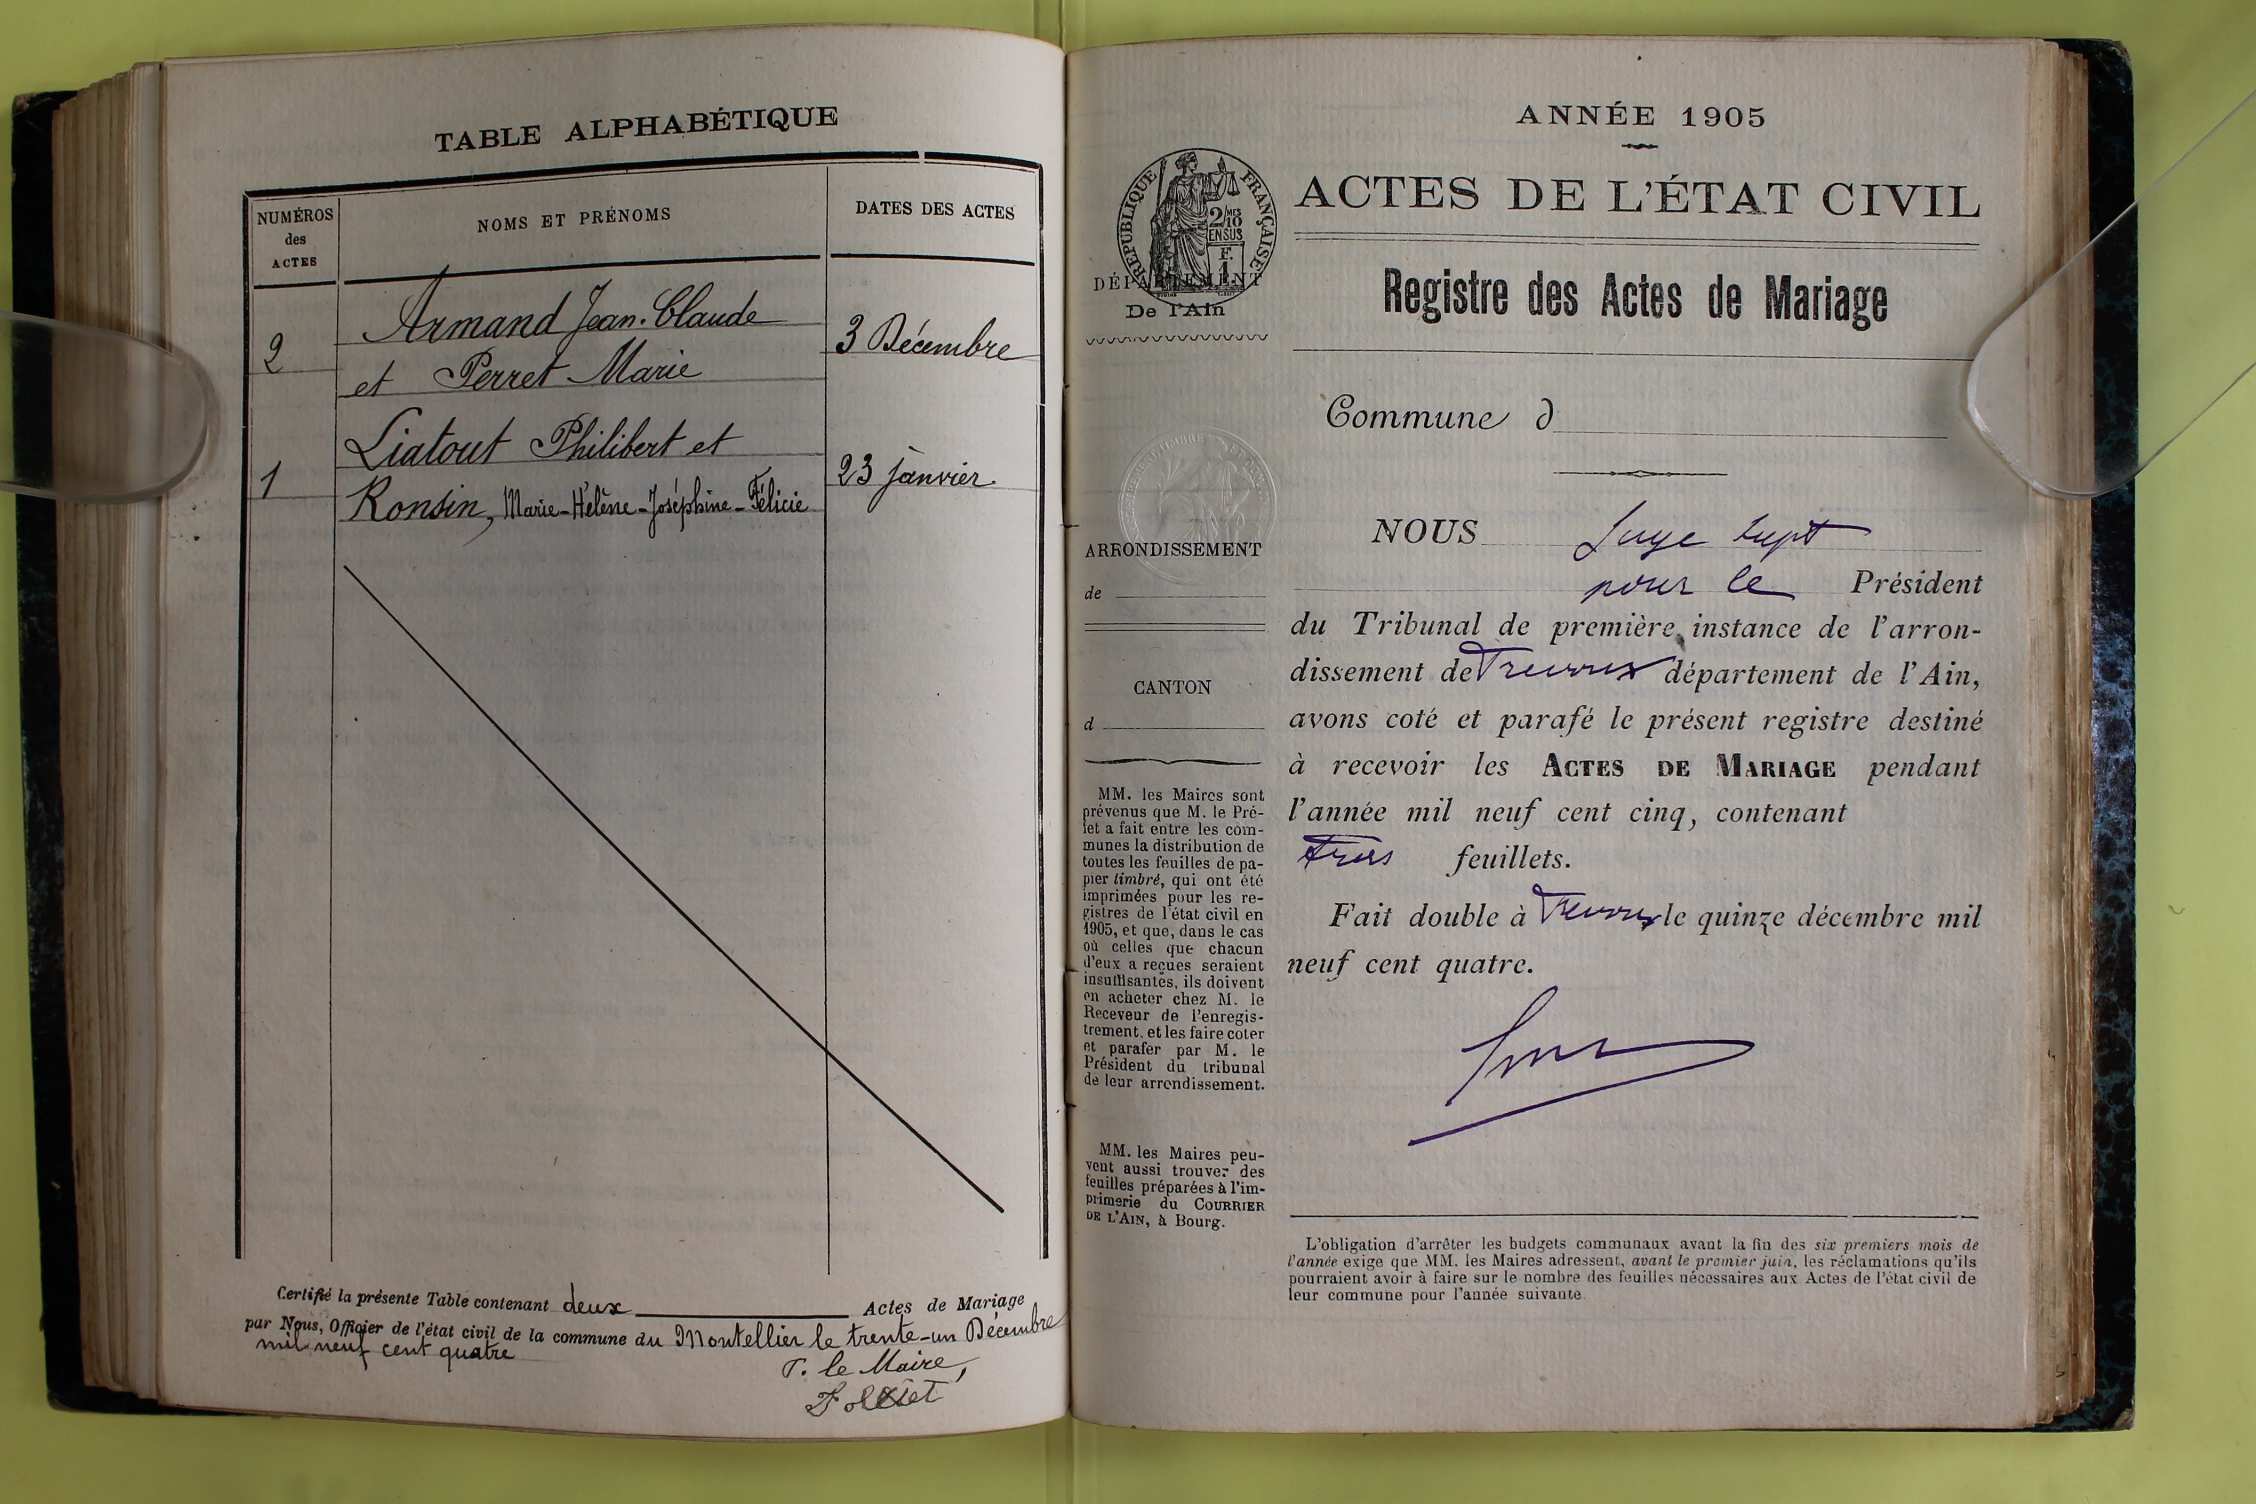 TABLE ALPHABÉTIQUE
NUMÉROS
des
ACTES
NOMS ET PRÉNOMS
DATES DES ACTES
2
Armand Jean-Claude
et Perret Marie
3 Décembre
1
Liatout Philibert et
Ronsin, Marie-Hélène-Joséphine-Félicie
23 janvier.
Certifié la présente Table contenant deux Actes de Mariage
par Nous, Officier de l'état civil de la commune du Montellier le trente-un Décembre
mil neuf cent quatre
P. le Maire,
ANNÉE 1905
ACTES DE L'ÉTAT CIVIL
RÉPUBLIQUE FRANÇAISE
2/10
MES
EN SUS
F.
1
DÉPARTEMENT
De l'Ain
Registre des Actes de Mariage
Commune d
ARRONDISSEMENT
de
CANTON
d
MM. les Maires sont
prévenus que M. le Pré-
fet a fait entre les com-
munes la distribution de
toutes les feuilles de pa-
pier timbré, qui ont été
imprimées pour les re-
gistres de l'état civil en
1905, et que, dans le cas
où celles que chacun
d'eux a reçues seraient
insuffisantes, ils doivent
en acheter chez M. le
Receveur de l'enregis-
trement, et les faire coter
et parafer par M. le
Président du tribunal
de leur arrondissement.
MM. les Maires peu-
vent aussi trouver des
feuilles préparées à l'im-
primerie du COURRIER
DE L'AIN, à Bourg.
NOUS Juge supt
pour le Président
du Tribunal de première instance de l'arron-
dissement de Trévoux département de l'Ain,
avons coté et parafé le présent registre destiné
à recevoir les ACTES DE MARIAGE pendant
l'année mil neuf cent cinq, contenant
trois feuillets.
Fait double à Trévoux le quinze décembre mil
neuf cent quatre.
L'obligation d'arrêter les budgets communaux avant la fin des six premiers mois de
l'année exige que MM. les Maires adressent, avant le premier juin, les réclamations qu'ils
pourraient avoir à faire sur le nombre des feuilles nécessaires aux Actes de l'état civil de
leur commune pour l'année suivante.